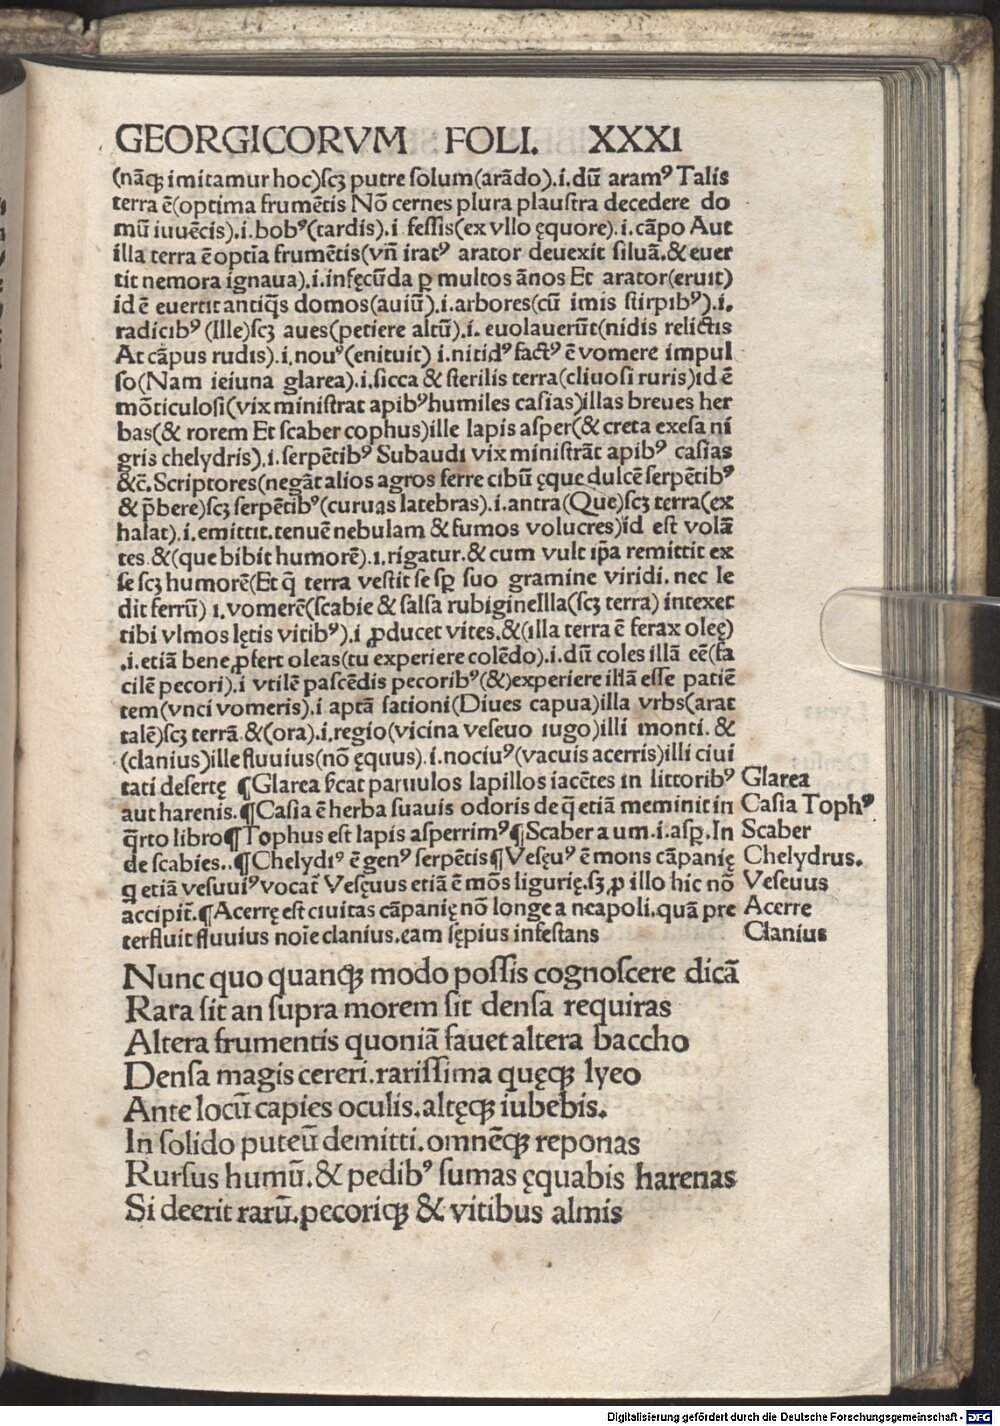 GEORGICORVM FOLI. XXXI
(nāqꝫ imitamur hoc)ſcꝫ putre ſolum(arādo).i.dū aramꝰ Talis
terra ē(optima frumētis Nō cernes plura plauſtra decedere do
mū iuuēcis).i.bobꝰ(tardis).i feſſis(ex vllo ęquore).i.cāpo Aut
illa terra ē optīa frumētis(vñ iratꝰ arator deuexit ſiluā.& euer
tit nemora ignaua).i.infęcūda ꝑ multos ānos Et arator(eruit)
id ē euertit antiq̄s domos(auiū).i.arbores(cū imis ſtirpibꝰ).i.
radicibꝰ(Ille)ſcꝫ aues(petiere altū).i. euolauerūt(nidis relictis
At cāpus rudis).i.nouꝰ(enituit) i.nitidꝰ factꝰ ē vomere impul
ſo(Nam ieiuna glarea).i.ſicca & ſterilis terra(cliuoſi ruris)id ē
mōticuloſi(vix miniſtrat apibꝰ humiles caſias)illas breues her
bas(& rorem Et ſcaber cophus)ille lapis aſper(& creta exeſa ni
gris chelydris).i.ſerpētibꝰ Subaudi vix miniſtrāt apibꝰ caſias
&c̄.Scriptores(negāt alios agros ferre cibū ęque dulcē ſerpētibꝰ
& p̄bere)ſcꝫ ſerpētibꝰ(curuas latebras).i.antra(Que)ſcꝫ terra(ex
halat).i.emittit.tenuē nebulam & fumos volucres)id eſt volā
tes.&(que bibit humorē).i.rigatur.& cum vult ip̄a remittit ex
ſe ſcꝫ humorē(Et q̄ terra veſtit ſe ſꝑ ſuo gramine viridi. nec le
dit ferrū) i.vomerē(ſcabie & ſalſa rubiginelIla(ſcꝫ terra) intexet
tibi vlmos lętis vitibꝰ).i ꝓducet vites.&(illa terra ē ferax oleę)
.i.etiā bene ꝓfert oleas(tu experiere colēdo).i.dū coles illā eē(fa
cilē pecori).i vtilē paſcēdis pecoribꝰ(&)experiere illā eſſe patiē
tem(vnci vomeris).i aptā ſationi(Diues capua)illa vrbs(arat
talē)ſcꝫ terrā.&(ora).i.regio(vicina veſeuo iugo)illi monti. &
(clanius)ille fluuius(nō ęquus).i.nociuꝰ(vacuis acerris)illi ciui
tati deſertę ¶Glarea ſicat paruulos lapillos iacētes in littoribꝰ Glarea
aut harenis.¶Caſia ē herba ſuauis odoris de q̄ etiā meminit in Caſia Tophꝰ
q̄rto libro¶Tophus eſt lapis aſperrimꝰ¶Scaber a um.i.aſꝑ.In Scaber
de ſcabies..¶Chelydiꝰ ē genꝰ ſerpētis¶Veſęuꝰ ē mons cāpanię Chelydrus.
q etiā veſuuiꝰ vocat̄ Veſęuus etiā ē mōs ligurię.ſꝫ ꝓ illo hic nō Veſeuus
accipit̄.¶Acerrę eſt ciuitas cāpanię nō longe a neapoli.quā pre Acerre
terfluit fluuius noīe clanius.eam ſępius infeſtans Clanius
Nunc quo quanqꝫ modo poſſis cognoſcere dicā
Rara ſit an ſupra morem ſit denſa requiras
Altera frumentis quoniā fauet altera baccho
Denſa magis cereri.rariſſima quęqꝫ lyeo
Ante locū capies oculis.altęqꝫ iubebis.
In ſolido puteū demitti.omnēqꝫ reponas
Rurſus humū.& pedibꝰ ſumas ęquabis harenas
Si deerit rarū.pecoriqꝫ & vitibus almis
Digitalisierung gefördert durch die Deutsche Forschungsgemeinschaft - DFG